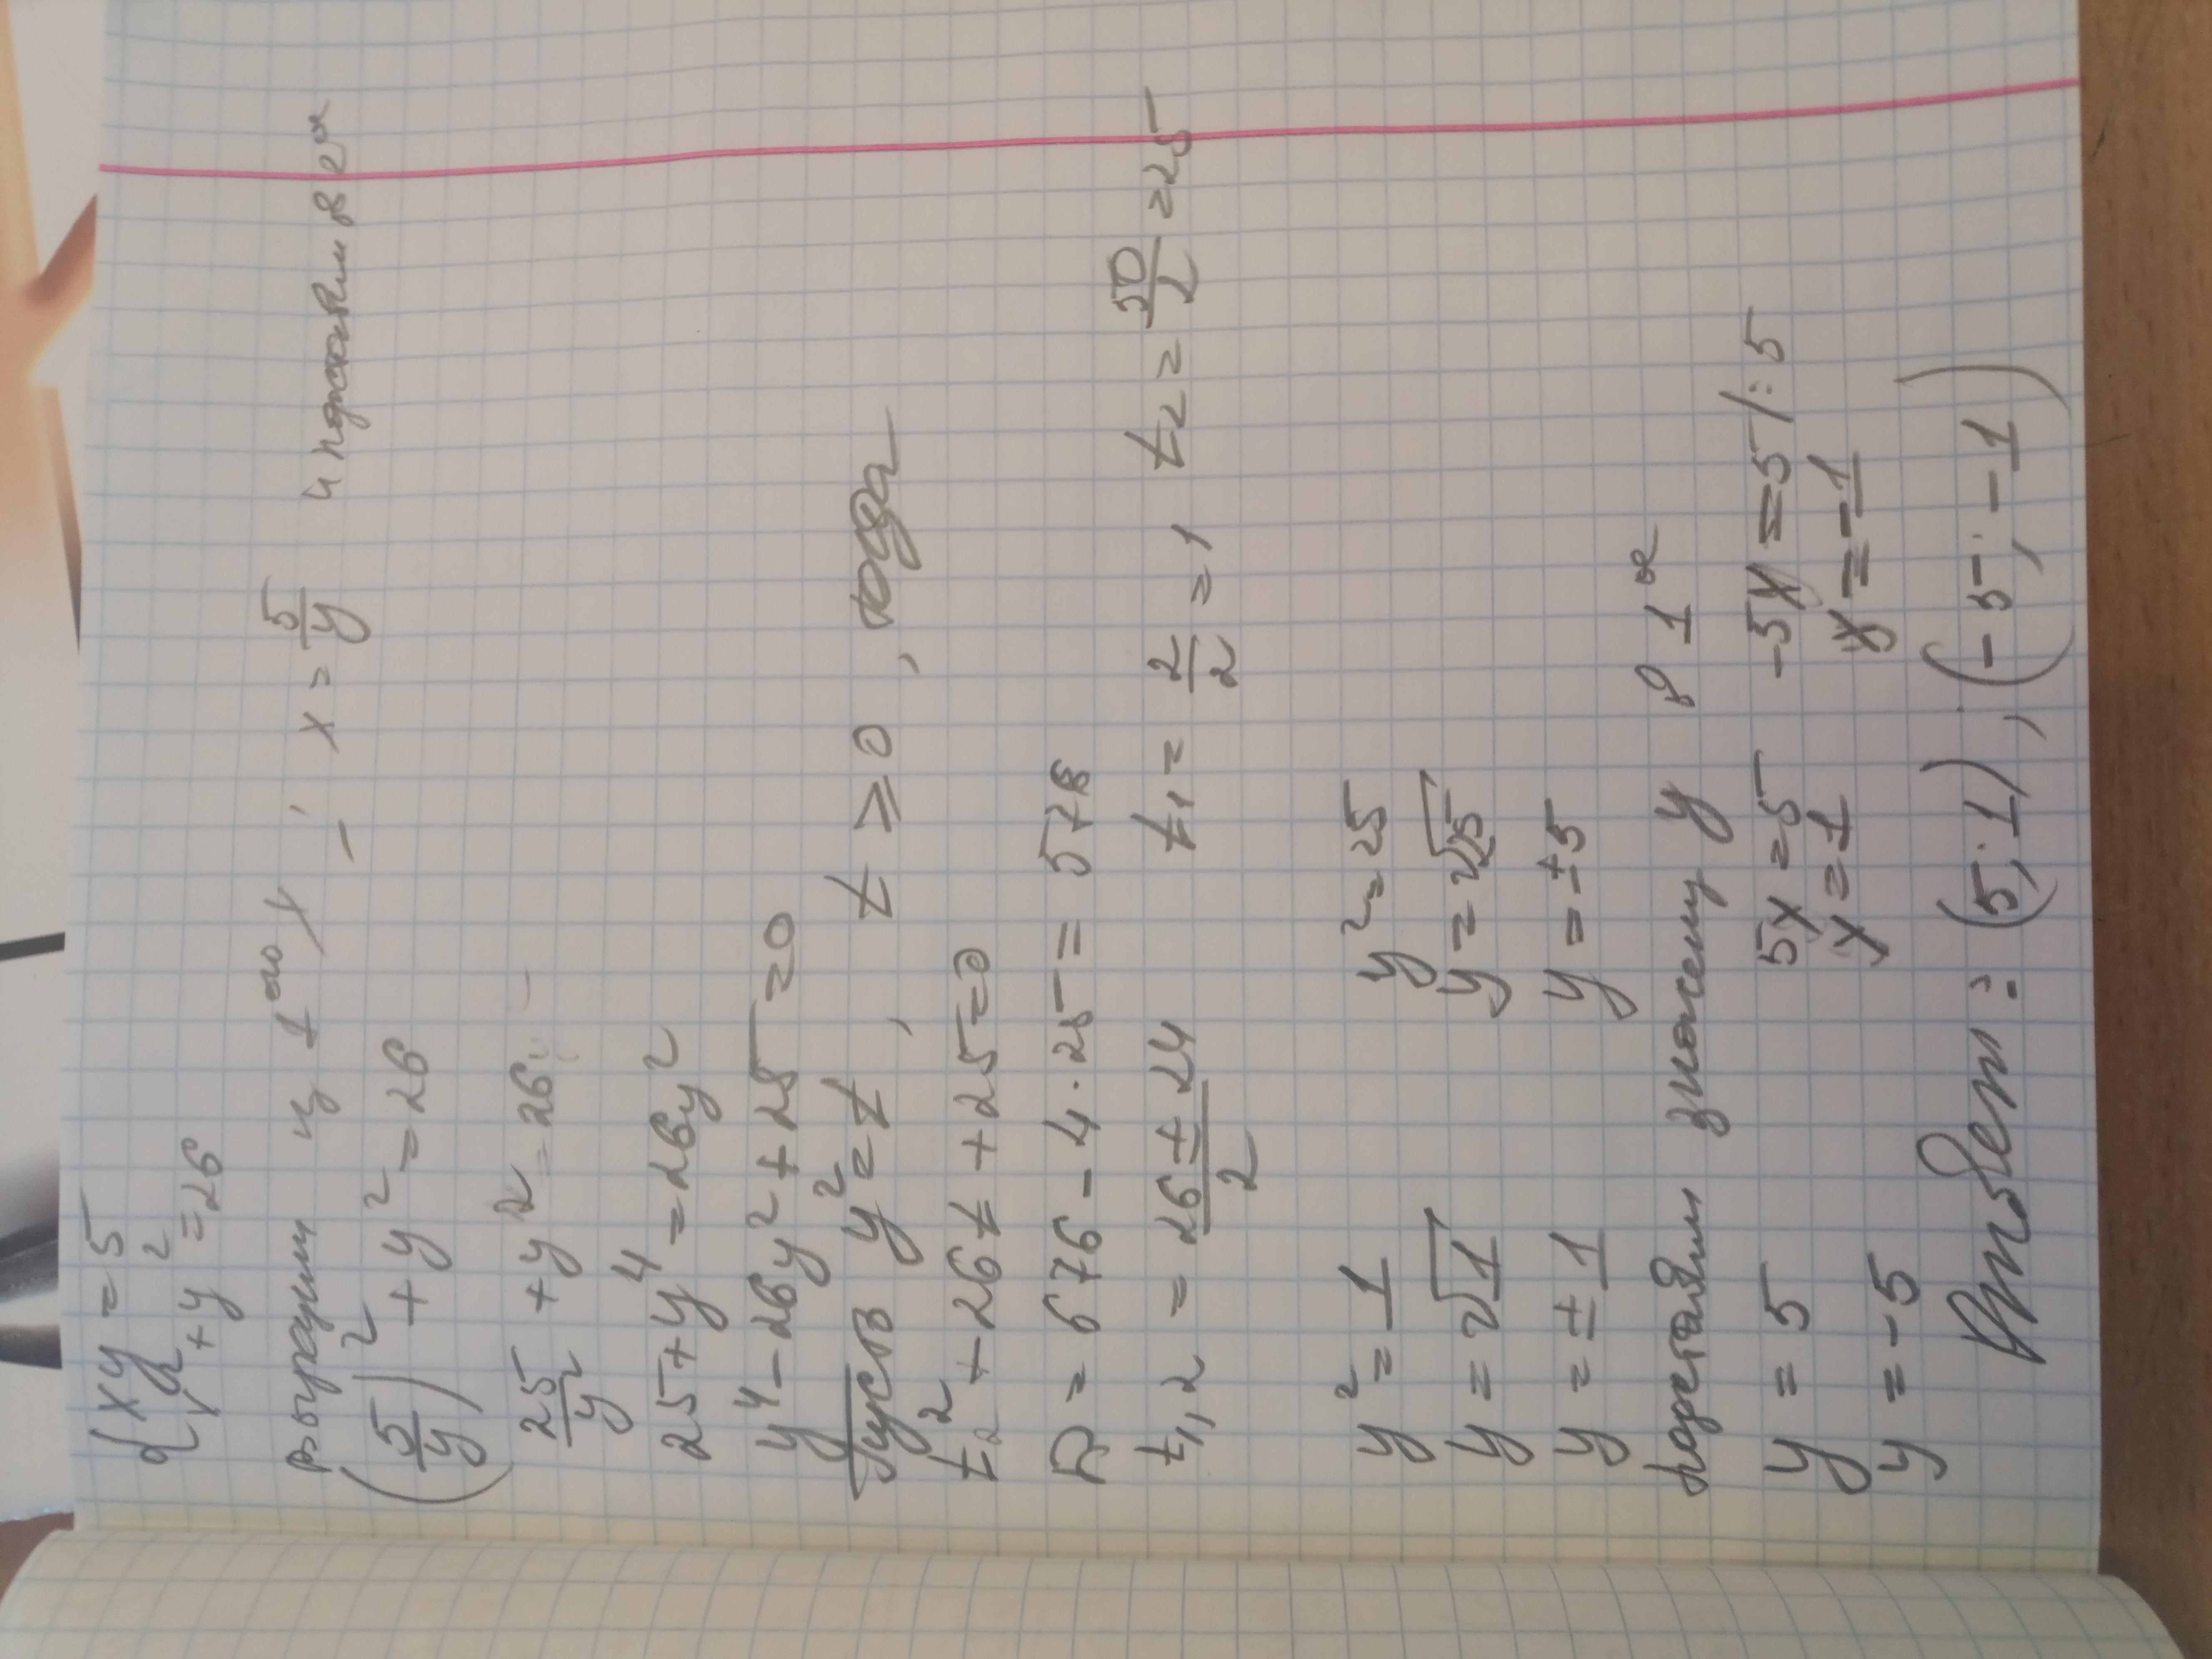 { xy = 5
x² + y² = 26
выразим из 1ого x - x = 5/y и подставим в 2ое
(5/y)² + y² = 26
25/y² + y² = 26
25 + y⁴ = 26y²
y⁴ - 26y² + 25 = 0
Пусть y² = t, t ≥ 0, тогда
t² + 26t + 25 = 0
D = 676 - 4·25 = 576
t₁,₂ = 26 ± 24 / 2 t₁ = 2/2 = 1 t₂ = 50/2 = 25
y² = 1 y² = 25
y = √1 y = √25
y = ±1 y = ±5
подставим значения y в 1ое
y = 5 5x = 5 -5x = 5 /:5
y = -5 x = 1 x = -1
Ответ: (5; 1), (-5; -1)